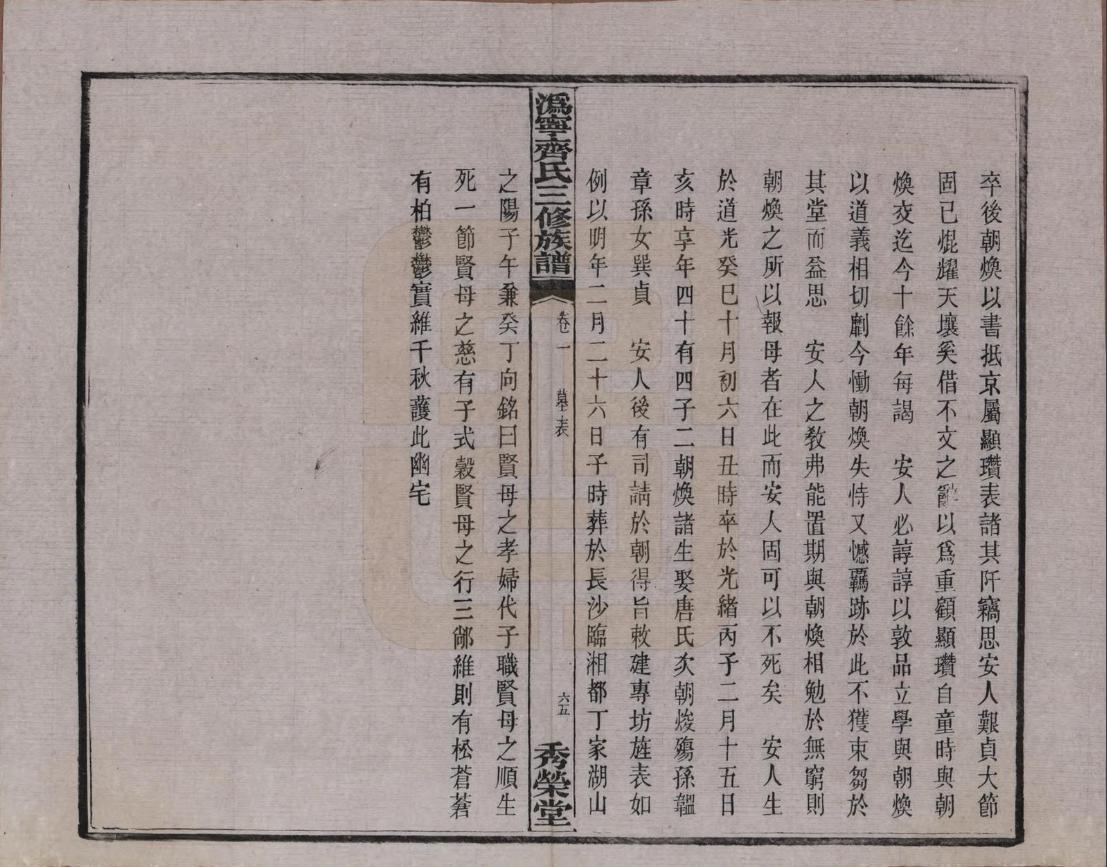 卒後朝煥以書抵京屬顯瓚表諸其阡竊思安人艱貞大節
固已焜耀天壤奚借不文之辭以爲重顧顯瓚自童時與朝
煥交迄今十餘年每謁 安人必諄諄以敦品立學與朝煥
以道義相切劘今慟朝煥失恃又憾羈跡於此不獲束芻於
其堂而益思 安人之教弗能置期與朝煥相勉於無窮則
朝煥之所以報母者在此而安人固可以不死矣 安人生
於道光癸巳十月初六日丑時卒於光緒丙子二月十五日
亥時享年四十有四子二朝煥諸生娶唐氏次朝焌殤孫韞
章孫女巽貞 安人後有司請於朝得旨敕建專坊旌表如
例以明年二月二十六日子時葬於長沙臨湘都丁家湖山
潙寧齊氏三修族譜
卷一
墓表
六五
秀榮堂
之陽子午兼癸丁向銘曰賢母之孝婦代子職賢母之順生
死一節賢母之慈有子式穀賢母之行三鄉維則有松蒼蒼
有柏鬱鬱實維千秋護此幽宅